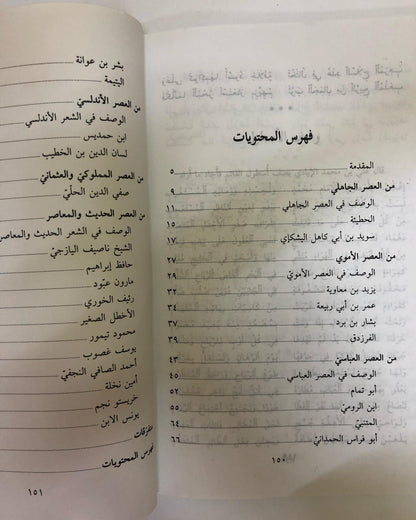 فهرس المحتويات
المقدمة ٥
من العصر الجاهلي ٩
الوصف في العصر الجاهلي ١١
الحطيئة ١٤
سويد بن أبي كاهل اليشكري ١٧
من العصر الأموي ٢٧
الوصف في العصر الأمويّ ٢٩
يزيد بن معاوية ٣٢
عمر بن أبي ربيعة ٣٤
بشار بن برد ٣٧
الفرزدق ٣٩
من العصر العباسيّ ٤٣
الوصف في العصر العباسي ٤٥
أبو تمام ٥٢
ابن الروميّ ٥٥
المتنبّي ٦٤
أبو فراس الحمدانيّ ٦٦
١٥٠
بشر بن عوانة
اليتيمة
من العصر الأندلسيّ
الوصف في الشعر الأندلسي
ابن حمديس
لسان الدين بن الخطيب
من العصر المملوكيّ والعثمانيّ
صفي الدين الحلّيّ
من العصر الحديث والمعاصر
الوصف في الشعر الحديث والمعاصر
الشيخ ناصيف اليازجيّ
حافظ إبراهيم
مارون عبّود
رئيف الخوري
الأخطل الصغير
محمود تيمور
يوسف غصوب
أحمد الصافي النجفيّ
أمين نخلة
خريستو نجم
يونس الابن
متفرقات
فهرس المحتويات
١٥١